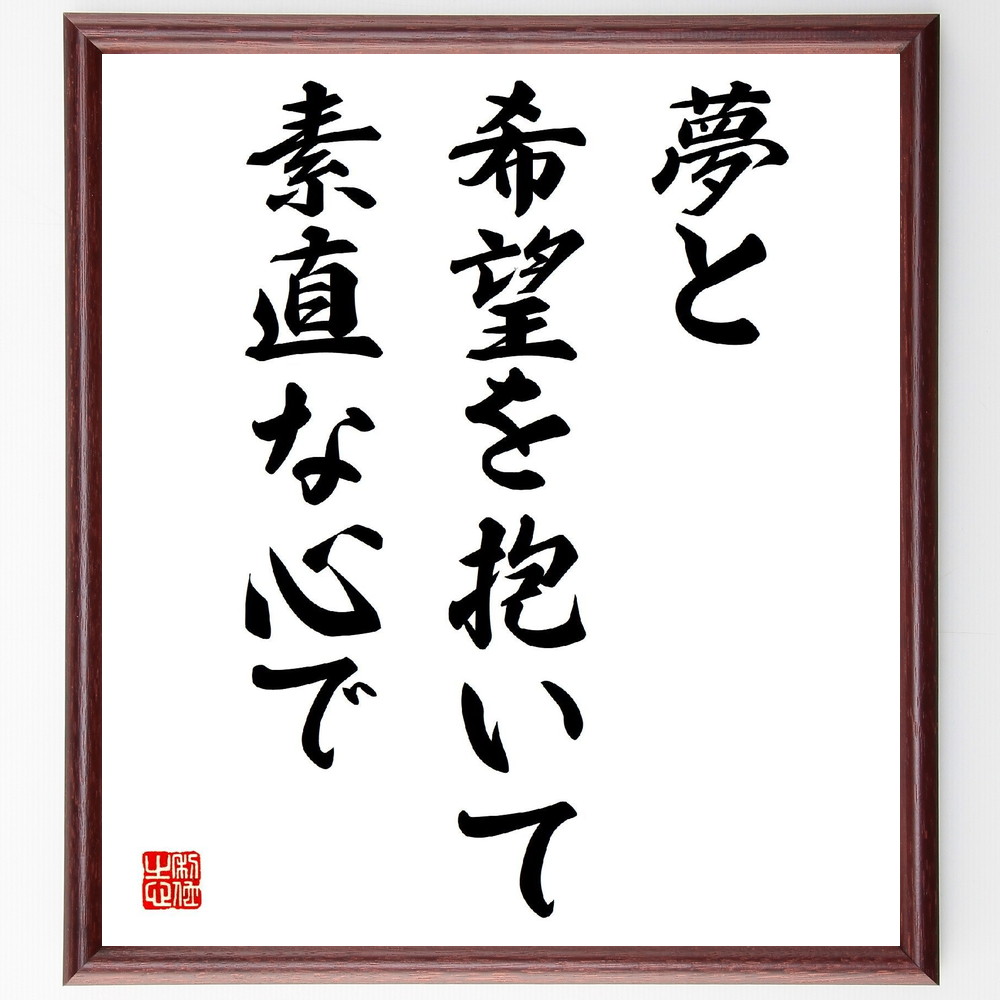 夢と
希望を抱いて
素直な心で